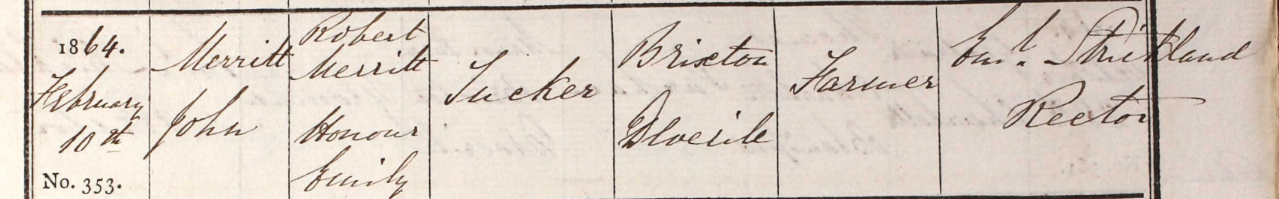 1864.
February
10th
No. 353.
Merritt
John
Robert
Merritt
Honour
Emily
Tucker
Brixton
Deverile
Farmer
Eml. Strickland
Rector